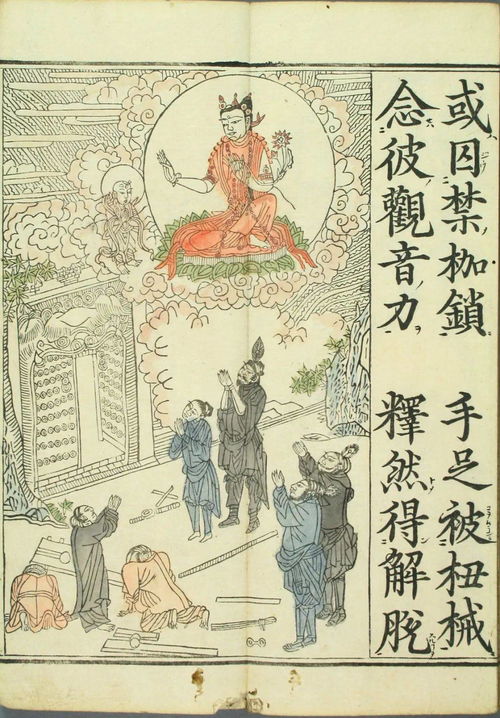 或囚禁枷鎖　手足被杻械
念彼觀音力　釋然得解脱